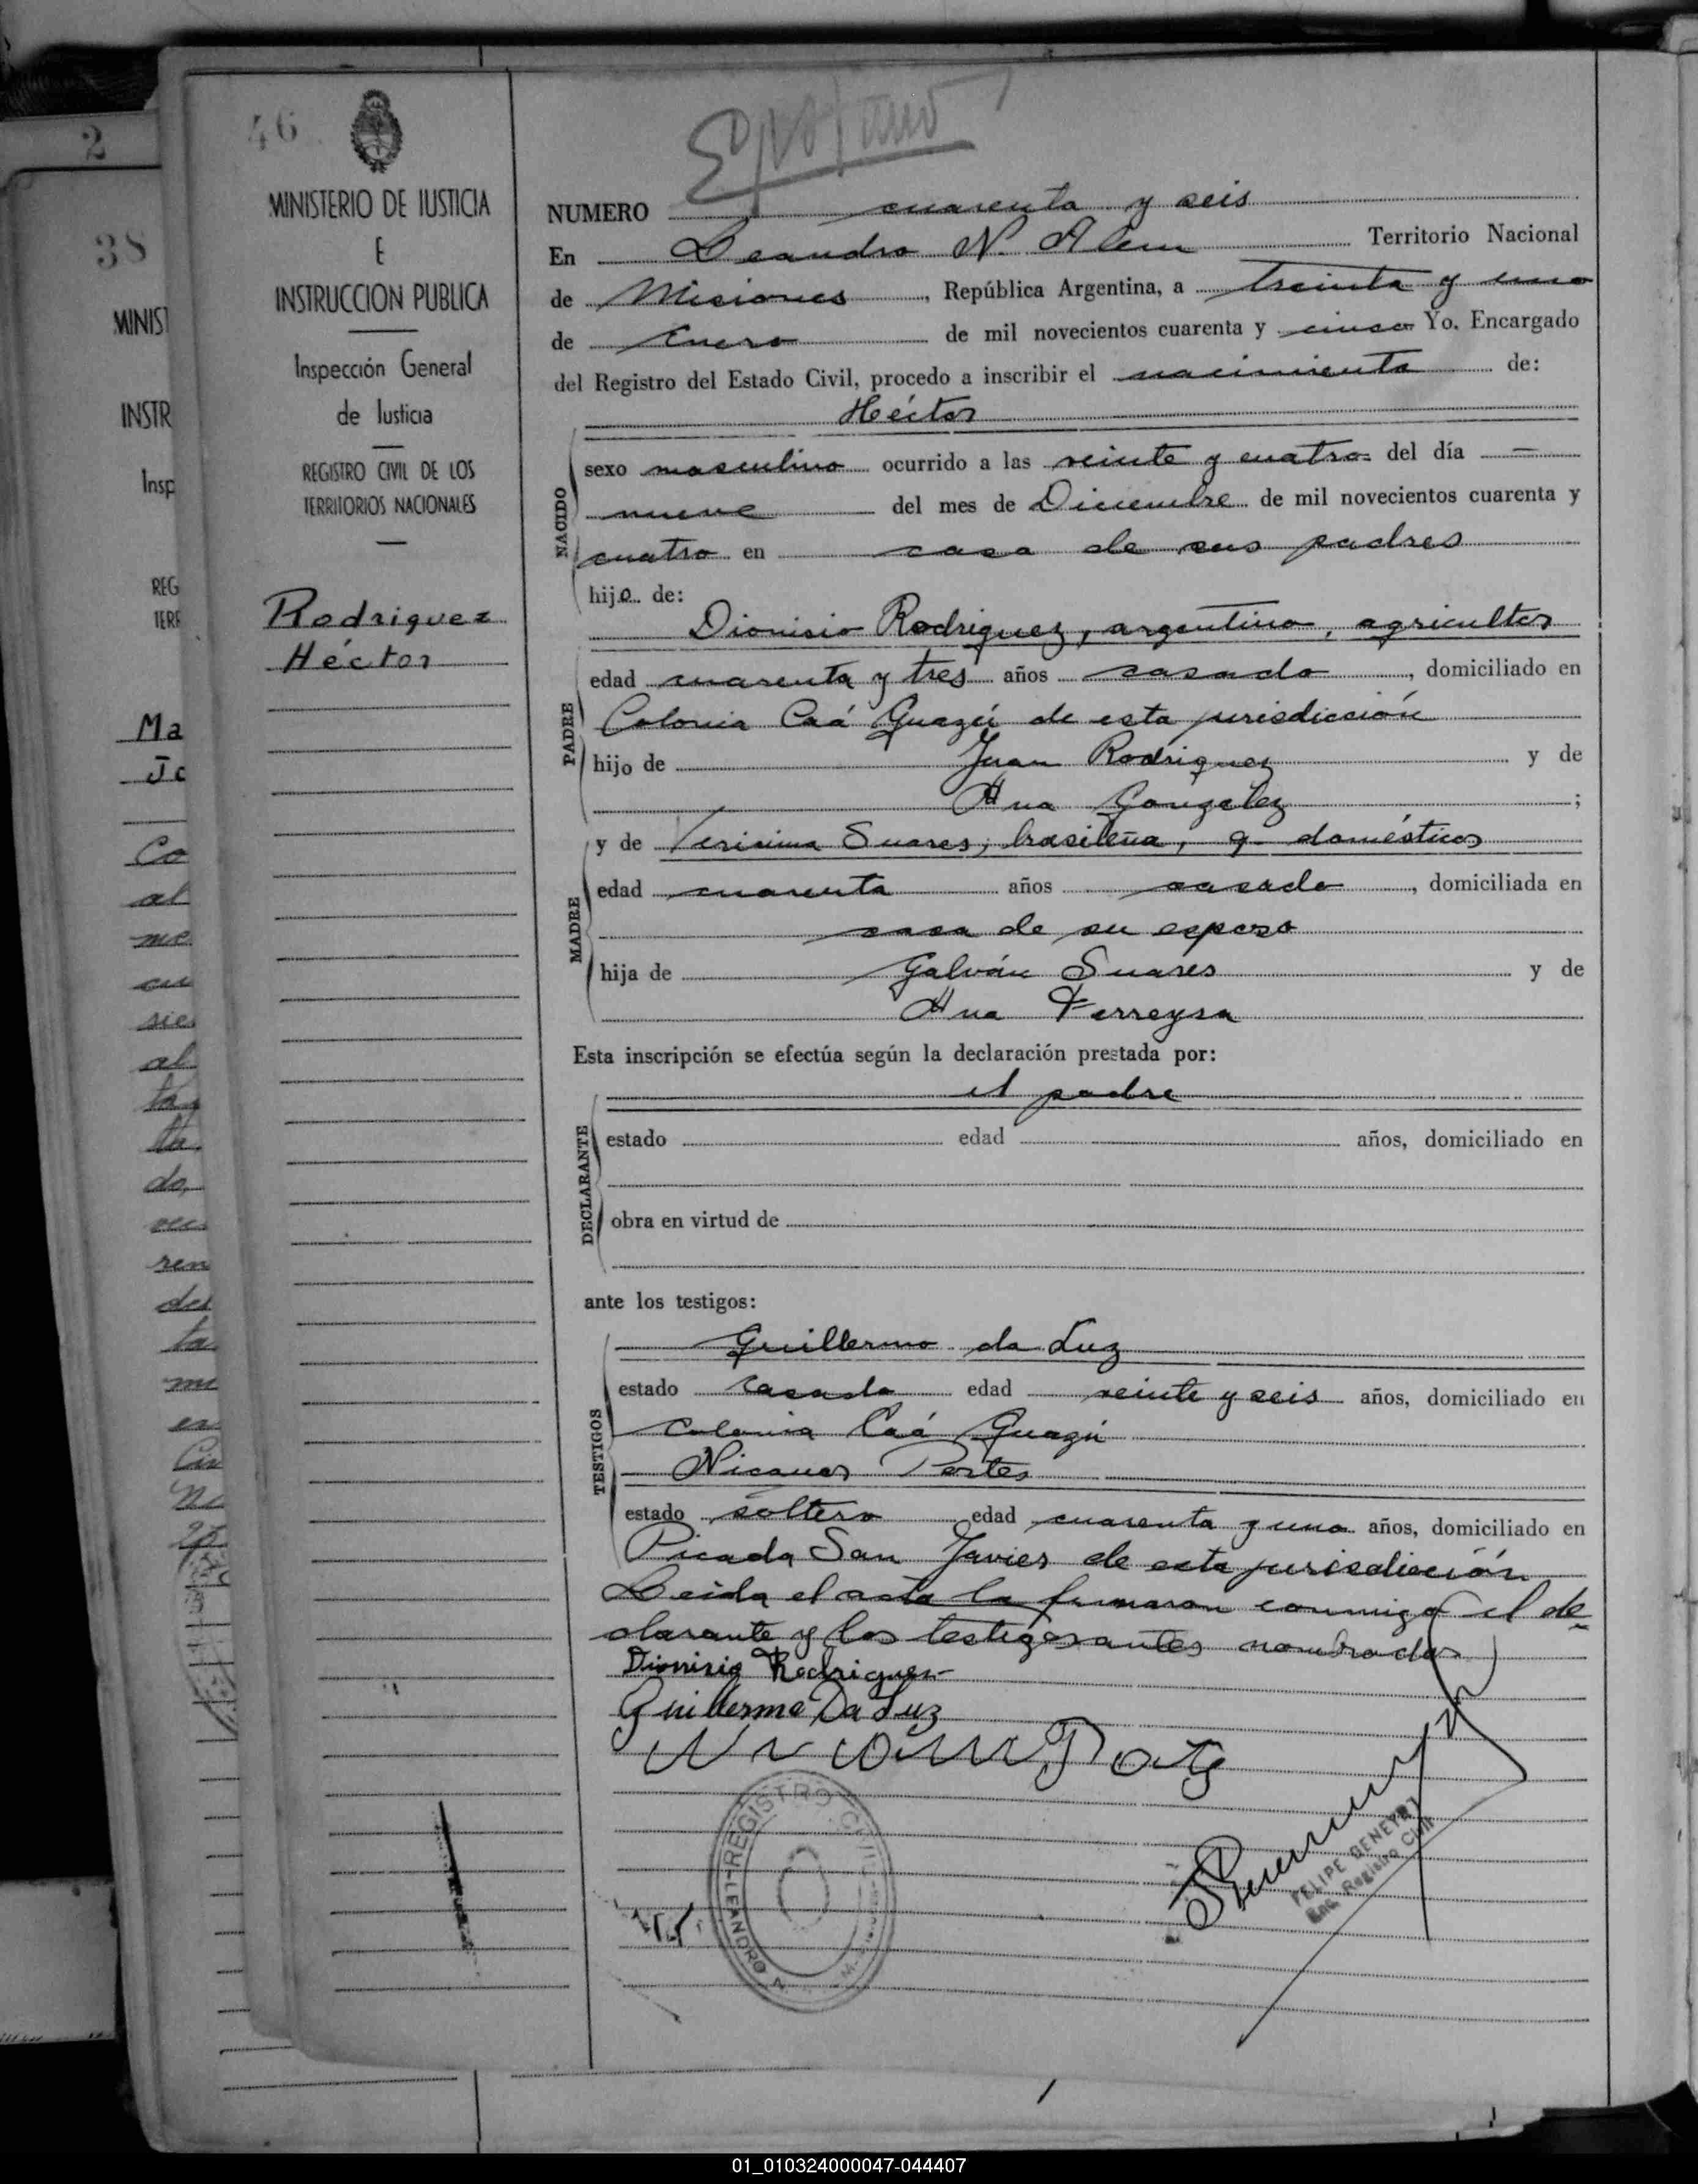 46
2
38
MINISTERIO DE JUSTICIA
E
INSTRUCCION PUBLICA
Inspección General
de Justicia
REGISTRO CIVIL DE LOS
TERRITORIOS NACIONALES
Rodriguez
Héctor
MINIST
INSTR
Insp
REG
TERR
Ma
Jo
Co
al
me
cu
sie
al
ta
do,
ren
des
ta
mi
en
Civ
NUMERO cuarenta y seis
En Leandro N. Alem Territorio Nacional
de Misiones, República Argentina, a treinta y uno
de Enero de mil novecientos cuarenta y cinco Yo. Encargado
del Registro del Estado Civil, procedo a inscribir el nacimiento de:
Héctor
NACIDO
sexo masculino ocurrido a las veinte y cuatro del día —
nueve del mes de Diciembre de mil novecientos cuarenta y
cuatro en casa de sus padres
hijo de:
PADRE
Dionisio Rodriguez, argentino, agricultor
edad cuarenta y tres años casado, domiciliado en
Colonia Caá Guazú de esta jurisdicción
hijo de Juan Rodriguez y de
Ana González;
MADRE
y de Verisima Suares, brasileña, q. domésticos
edad cuarenta años casada, domiciliada en
casa de su esposo
hija de Galván Suarés y de
Ana Ferreyra
Esta inscripción se efectúa según la declaración prestada por:
el padre
DECLARANTE
estado edad años, domiciliado en
obra en virtud de
ante los testigos:
TESTIGOS
Guillermo da Luz
estado casado edad veinte y seis años, domiciliado en
Colonia Caá Guazú
Nicanor Portes
estado soltero edad cuarenta y uno años, domiciliado en
Picada San Javier de esta jurisdicción
Leida el acta la firmaron conmigo el de
clarante y los testigos antes nombrados
Dionisio Rodriguez
Guillermo Da Luz
Nicanor Portes
REGISTRO CIVIL
LEANDRO N
FELIPE BENEYTO
Enc. Registro Civil
01_010324000047-044407